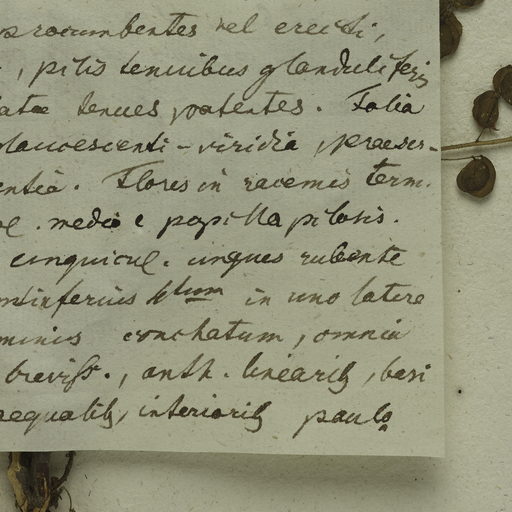 procumbentes vel erecti,
, pilis tenuibus glanduliferis
tenues, patentes. Folia
glaucescenti-viridia, praeser-
entia. Flores in racemis term.
. medio e papilla pilosis.
unguicul. ungues rubente
inferius in uno latere
minus conchatum, omnia
breviss., anth. linearib, basi
aequalib, interiorib paulo